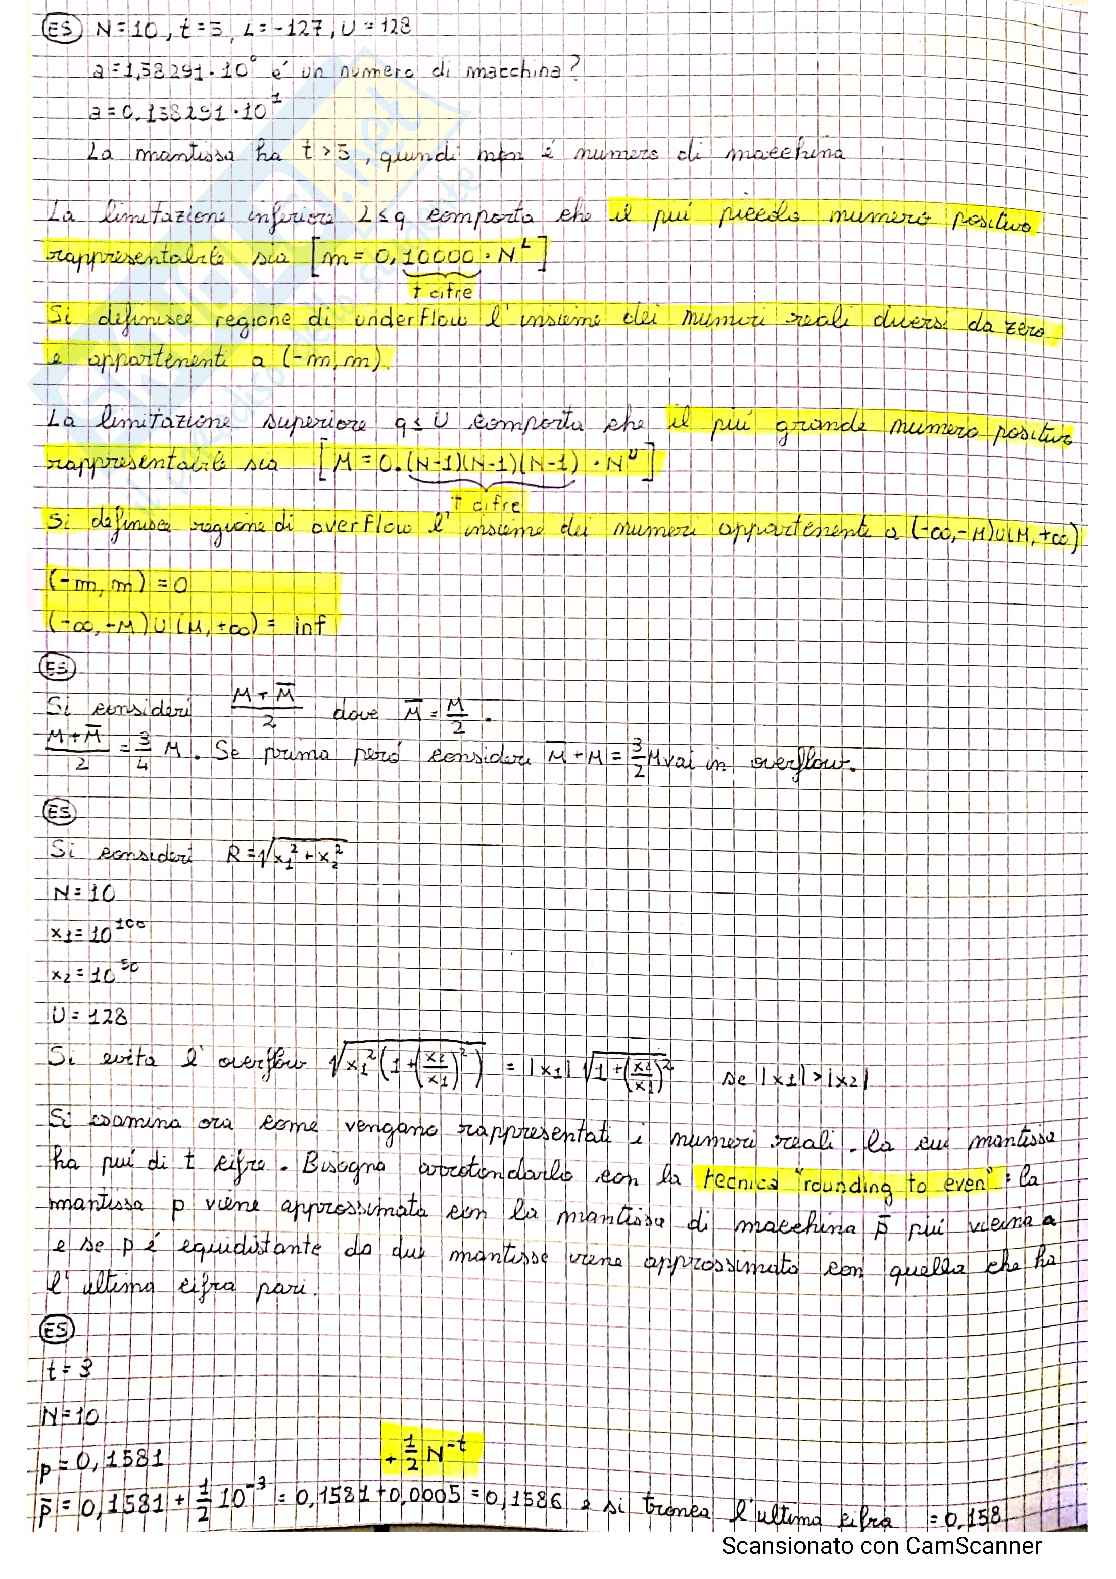 ES N=10, t=5, L=-127, U=128
a=1,58291·10⁰ é un numero di macchina?
a=0,158291·10¹
La mantissa ha t>5, quindi non é numero di macchina
La limitazione inferiore L≤q comporta che il puì piccolo numero positivo
rappresentabile sia [m=0,10000·N^L]
t cifre
Si definisce regione di underflow l'insieme dei numeri reali diversi da zero
e appartenenti a (-m,m).
La limitazione superiore q≤U comporta che il puì grande numero positivo
rappresentabile sia [M=0.(N-1)(N-1)(N-1)·N^U]
t cifre
Si definisce regione di overflow l'insieme dei numeri appartenente a (-∞,-M)∪(M,+∞)
(-m, m) = 0
(-∞,-M)∪(M,+∞) = inf
ES
Si consideri (M+M̄)/2 dove M̄=M/2.
(M+M̄)/2 = 3/4 M. Se prima peró consideri M̄+M=3/2M vai in overflow.
ES
Si consideri R=√(x₁²+x₂²)
N=10
x₁=10¹⁰⁰
x₂=10⁵⁰
U=128
Si evita l'overflow √(x₁²(1+(x₂/x₁)²)) = |x₁|√(1+(x₂/x₁)²) se |x₁|>|x₂|
Si esamina ora come vengano rappresentati i numeri reali. la cui mantissa
ha puì di t cifre. Bisogna arrotondarlo con la tecnica "rounding to even": la
mantissa p viene approssimata con la mantissa di macchina p̄ puì vicina a
e se p é equidistante da due mantisse viene approssimato con quella che ha
l'ultima cifra pari.
ES
t=3
N=10
p=0,1581
+1/2 N^-t
p̄=0,1581+1/2 10⁻³=0,1581+0,0005=0,1586 e si tronca l'ultima cifra =0,158
Scansionato con CamScanner